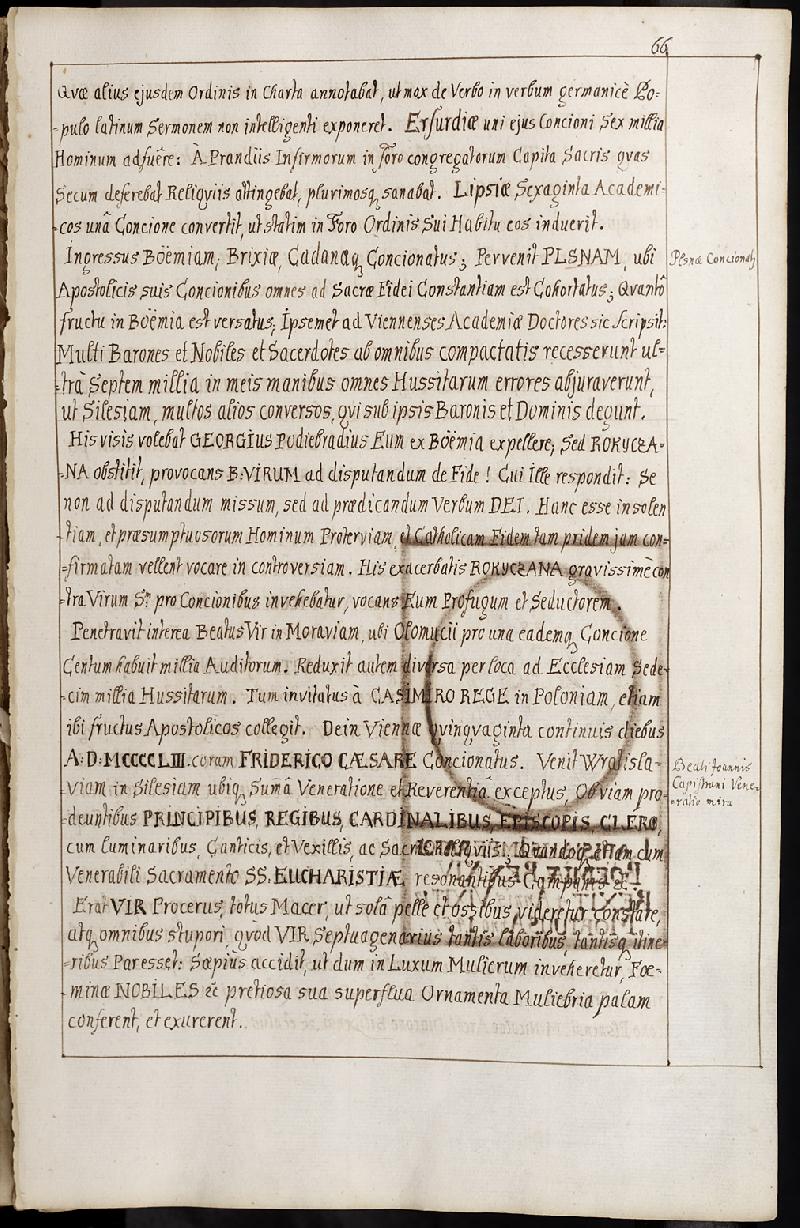 66
Qvæ alius ejusdem Ordinis in Charta annotabat, ut mox de Verbo in verbum germanicè Po=
-pulo latinum Sermonem non intelligenti exponeret. Erfurdiæ uni ejus Concioni Sex millia
Hominum adfuêre: À Prandiis Infirmorum in foro congregatorum Capita Sacris qvas
Secum deferebat Reliqviis attingebat, plurimosq sanabat. Lipsiæ Sexaginta Academi-
-cos unâ Concione convertit, ut statim in Foro Ordinis Sui Habitu eos induerit.
Ingressus Boëmiam; Brixiæ, Cadanæq Concionatus; Pervenit PLSNAM, ubi
Plsnæ Concionatq
Apostolicis suis Concionibus omnes ad Sacræ Fidei Constantiam est Cohortatus; Qvantô
fructu in Boëmia est versatus; Ipsemet ad Viennenses Academiæ Doctores sic scripsit:
Multi Barones et Nobiles et Sacerdotes ab omnibus compactatis recesserunt ul=
-trà Septem millia in meis manibus omnes Hussitarum errores abjuraverunt,
ut Silesiam, multos alios conversos, qvi sub ipsis Baronis et Dominis degunt.
His visis volebat GEORGIUS Podiebradius Eum ex Boëmia expellere; Sed ROKYCZA-
-NA obstitit, provocans B: VIRUM ad disputandum de Fide! Cui Ille respondit: Se
non ad disputandum missum, sed ad prædicandum Verbum DEI. Hanc esse insolen
-tiam, et præsumptuosorum Hominum Proterviam, et Catholicam Fidem tam pridem jam con-
-firmatam vellent vocare in controversiam. His exacerbatis ROKYCZANA gravissimè con
-tra Virum St: pro Concionibus invehebatur, vocans Eum Profugum et Seductorem.
Penetravit interea Beatus Vir in Moraviam, ubi Olomucii pro una eademq Concione
Centum habuit millia Auditorum. Reduxit autem diversa per loca ad Ecclesiam Sede-
-cim millia Hussitarum. Tum invitatus à CASIMIRO REGE in Poloniam, etiam
ibi fructus Apostolicos collegit. Dein Viennæ qvinqvaginta continuis diebus
A: D: MCCCCLIII. coram FRIDERICO CÆSARE Concionatus. Venit Wratisla-
Beati Joannis
Capistrani Vene-
-ratio mira
viam in Silesiam ubiq Sumâ Veneratione et Reverentiâ exceptus, Obviam pro-
-deuntibus PRINCIPIBUS, REGIBUS, CARDINALIBUS, EPISCOPIS, CLERO,
cum luminaribus, Canticis, et Vexillis, ac Sacris Reliqviis, Qvandoq etiam cum
Venerabili Sacramento SS. EUCHARISTIÆ, resonantibus Campanis &c.
Erat VIR Procerus, totus Macer, ut solâ pelle et ossibus videretur constare,
atq omnibus stupori, qvod VIR Septuagenarius tantis laboribus, tantisq itine-
-ribus Par esset: Sæpius accidit, ut dum in Luxum Mulierum inveheretur, Foe-
-minæ NOBILES &c pretiosa sua superflua Ornamenta Muliebria palam
conferent, et exurerent.